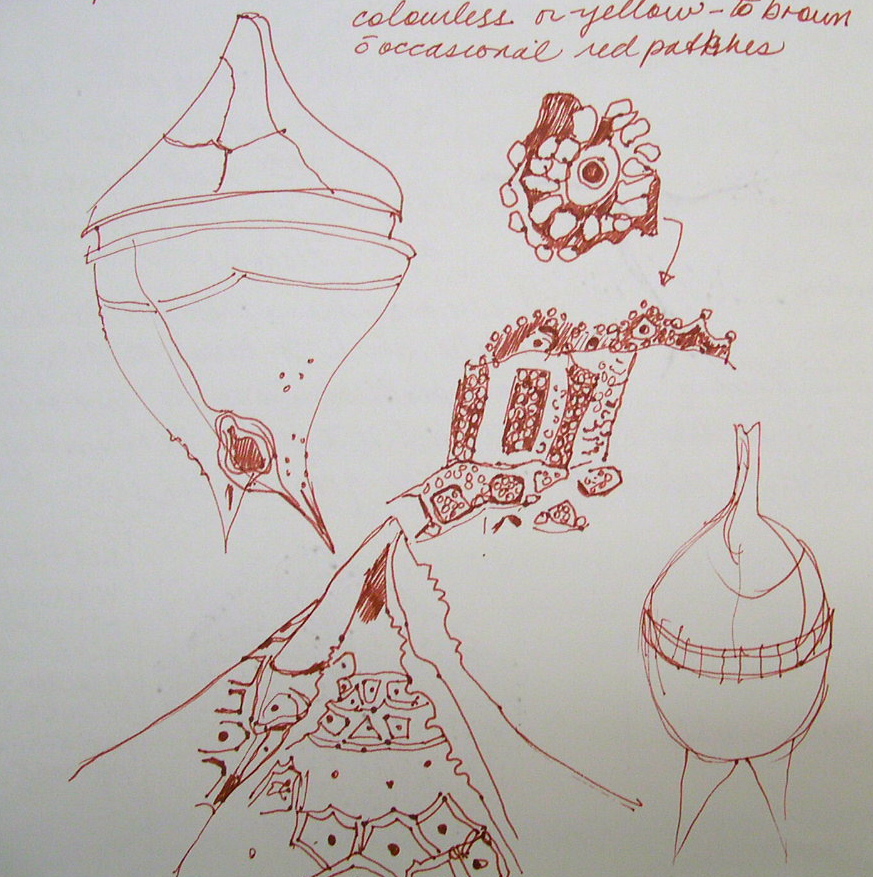 colourless or yellow - to brown
ō occasional red patches